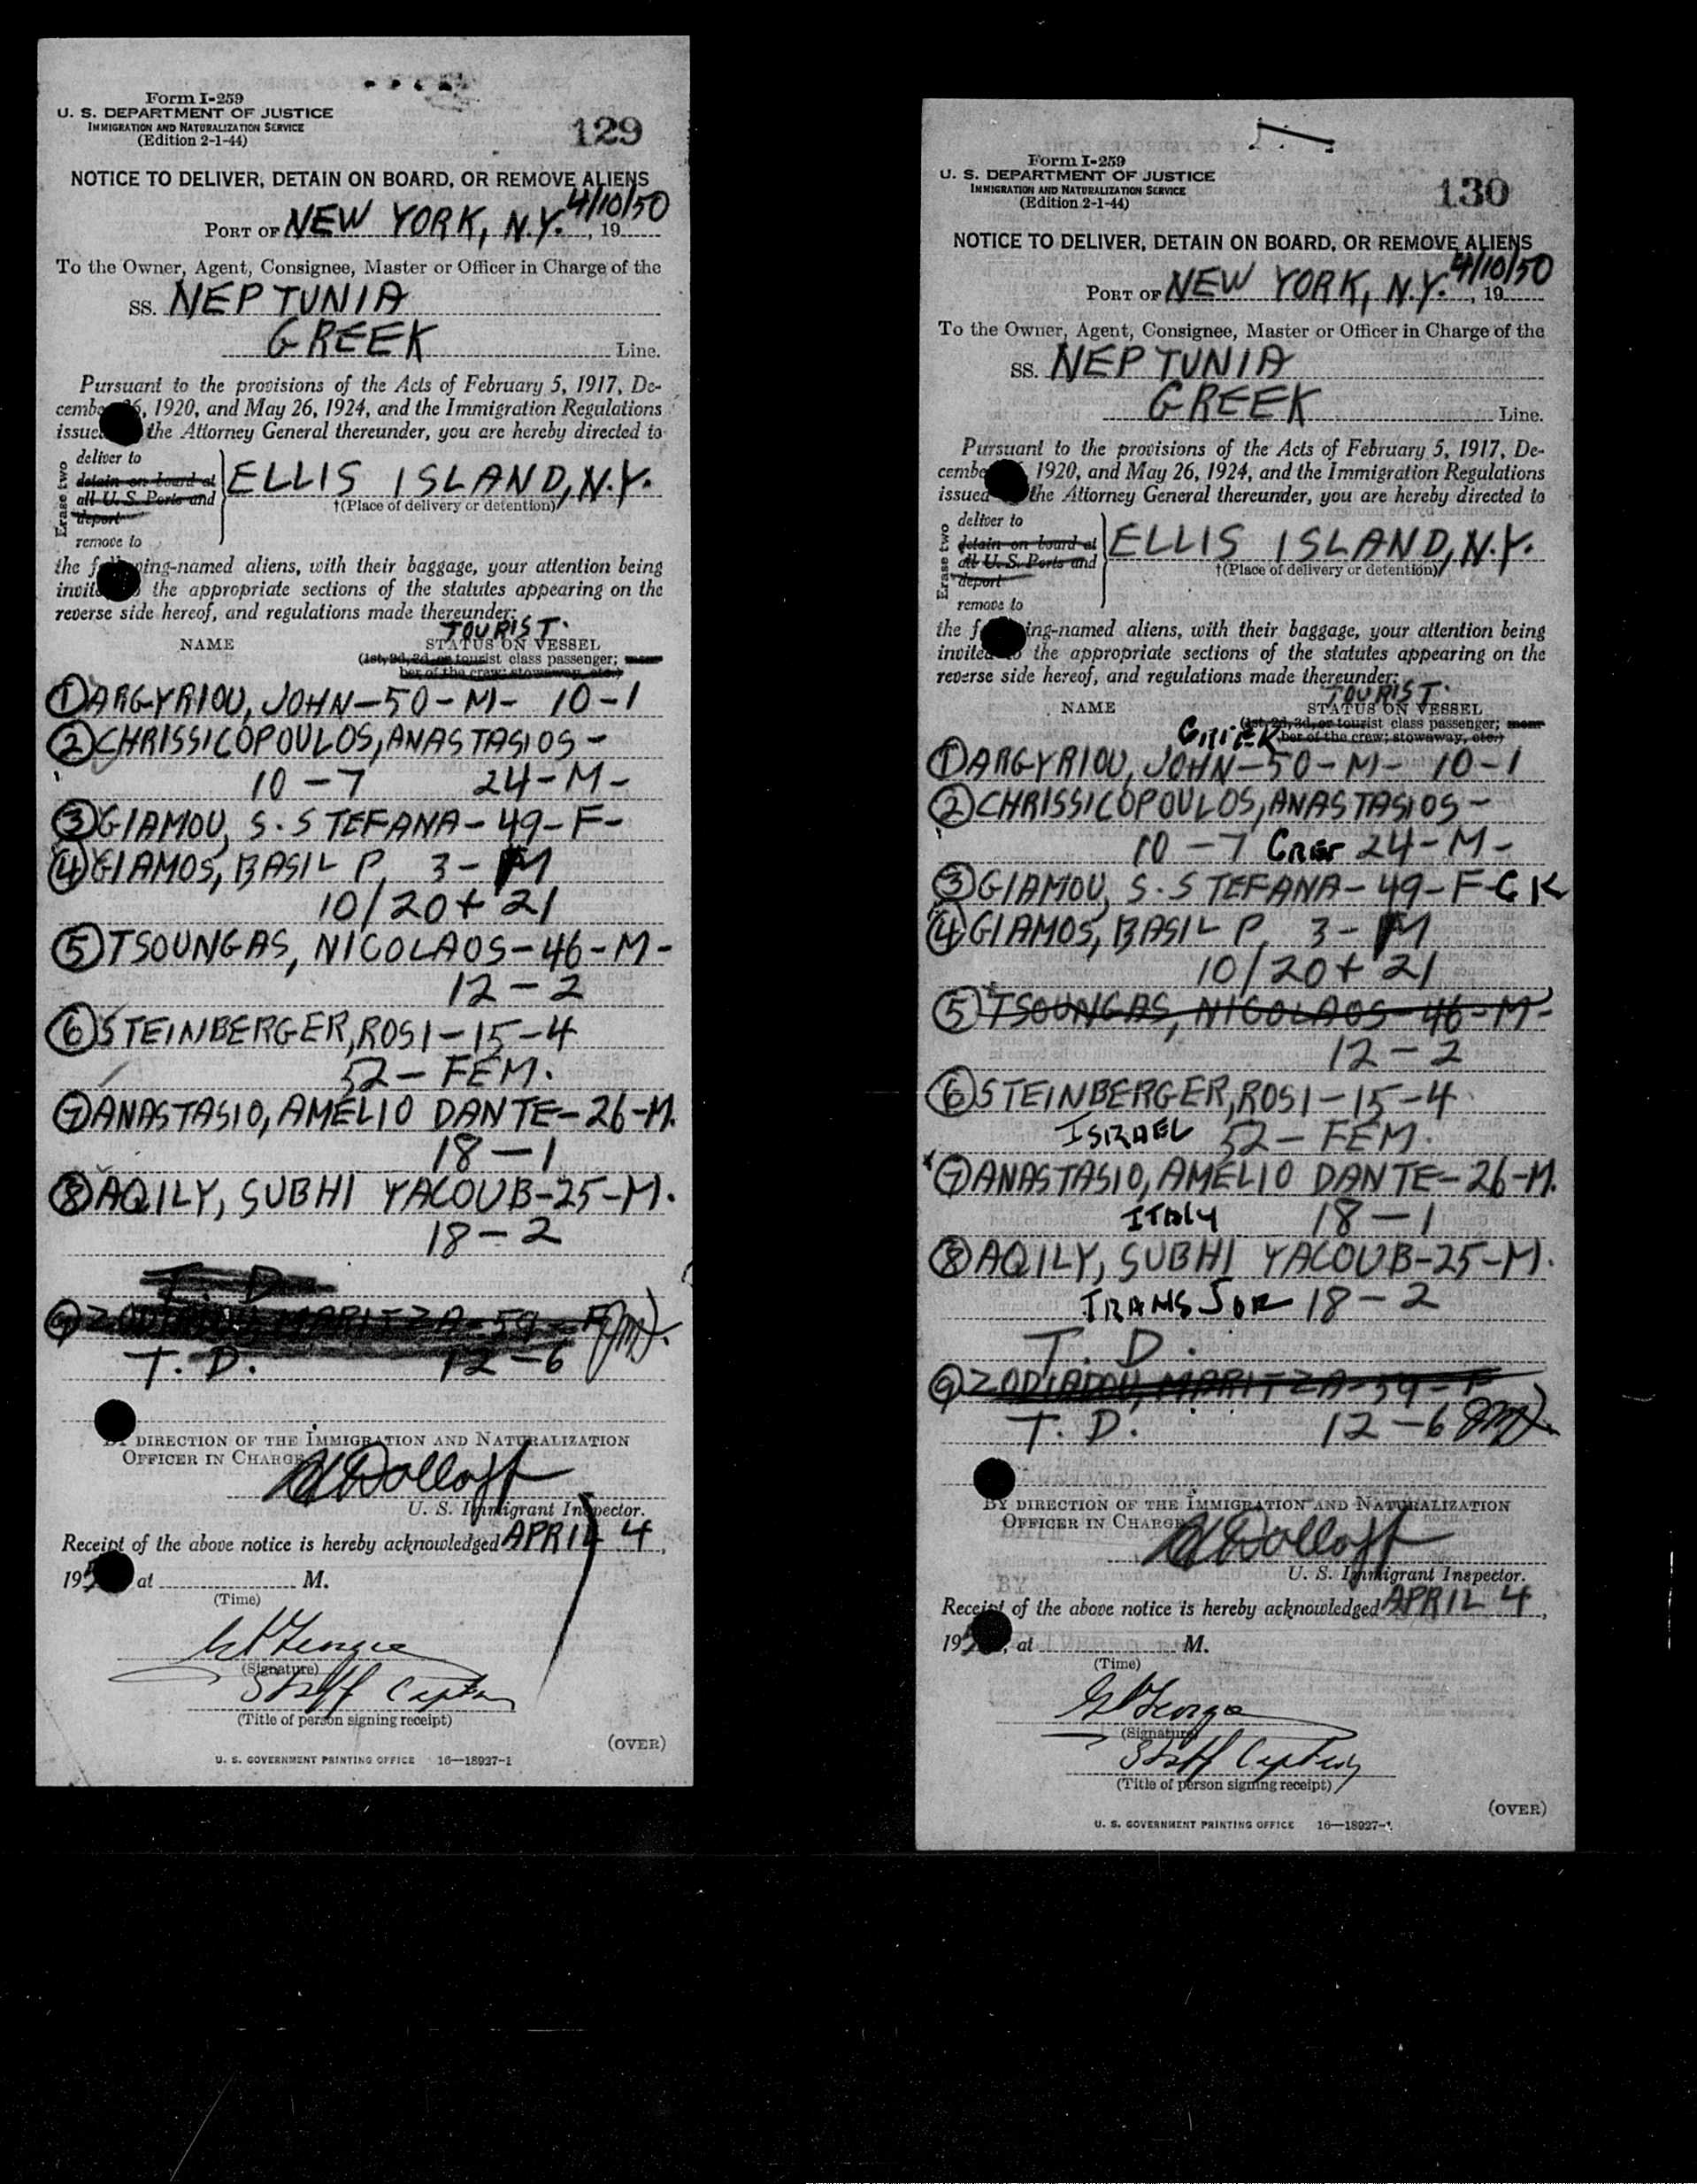 Form I-259
U. S. DEPARTMENT OF JUSTICE
IMMIGRATION AND NATURALIZATION SERVICE
(Edition 2-1-44)
129
NOTICE TO DELIVER, DETAIN ON BOARD, OR REMOVE ALIENS
4/10/50
PORT OF NEW YORK, N.Y. , 19
To the Owner, Agent, Consignee, Master or Officer in Charge of the
SS. NEPTUNIA
GREEK Line.
Pursuant to the provisions of the Acts of February 5, 1917, De-
cembe 26, 1920, and May 26, 1924, and the Immigration Regulations
issue the Attorney General thereunder, you are hereby directed to
Erase two
deliver to
detain on board at
all U. S. Ports and
deport
remove to
ELLIS ISLAND, N.Y.
†(Place of delivery or detention)
the following-named aliens, with their baggage, your attention being
invite the appropriate sections of the statutes appearing on the
reverse side hereof, and regulations made thereunder:
TOURIST.
NAME STATUS ON VESSEL
(1st, 2d, 3d, or tourist class passenger; mem-
ber of the crew; stowaway, etc.)
① ARGYRIOU, JOHN-50-M- 10-1
② CHRISSICOPOULOS, ANASTASIOS-
10-7 24-M-
③ GIAMOU, S. STEFANA-49-F-
④ GIAMOS, BASIL P, 3-M
10/20+21
⑤ TSOUNGAS, NICOLAOS-46-M-
12-2
⑥ STEINBERGER, ROSI-15-4
52-FEM.
⑦ ANASTASIO, AMELIO DANTE-26-M.
18-1
⑧ AQILY, SUBHI YACOUB-25-M.
18-2
T. D
⑨ ZODIADOU, MARITZA-59-F
T. D. 12-6
BY DIRECTION OF THE IMMIGRATION AND NATURALIZATION
OFFICER IN CHARGE
U. S. Immigrant Inspector.
Receipt of the above notice is hereby acknowledged APRIL 4,
195 at M.
(Time)
(Signature)
Staff Captain
(Title of person signing receipt)
(OVER)
U. S. GOVERNMENT PRINTING OFFICE 16—18927-1
Form I-259
U. S. DEPARTMENT OF JUSTICE
IMMIGRATION AND NATURALIZATION SERVICE
(Edition 2-1-44)
130
NOTICE TO DELIVER, DETAIN ON BOARD, OR REMOVE ALIENS
4/10/50
PORT OF NEW YORK, N.Y. , 19
To the Owner, Agent, Consignee, Master or Officer in Charge of the
SS. NEPTUNIA
GREEK Line.
Pursuant to the provisions of the Acts of February 5, 1917, De-
cembe 1920, and May 26, 1924, and the Immigration Regulations
issued the Attorney General thereunder, you are hereby directed to
Erase two
deliver to
detain on board at
all U. S. Ports and
deport
remove to
ELLIS ISLAND, N.Y.
†(Place of delivery or detention)
the following-named aliens, with their baggage, your attention being
invited to the appropriate sections of the statutes appearing on the
reverse side hereof, and regulations made thereunder:
TOURIST.
NAME STATUS ON VESSEL
(1st, 2d, 3d, or tourist class passenger; mem-
GREEK ber of the crew; stowaway, etc.)
① ARGYRIOU, JOHN-50-M- 10-1
② CHRISSICOPOULOS, ANASTASIOS-
10-7 24-M-
③ GIAMOU, S. STEFANA-49-F-GK
④ GIAMOS, BASIL P, 3-M
10/20+21
⑤ TSOUNGAS, NICOLAOS-46-M-
12-2
⑥ STEINBERGER, ROSI-15-4
ISRAEL 52-FEM.
⑦ ANASTASIO, AMELIO DANTE-26-M.
ITALY 18-1
⑧ AQILY, SUBHI YACOUB-25-M.
TRANS JOR 18-2
T. D.
⑨ ZODIADOU, MARITZA-59-F
T. D. 12-6
BY DIRECTION OF THE IMMIGRATION AND NATURALIZATION
OFFICER IN CHARGE
U. S. Immigrant Inspector.
Receipt of the above notice is hereby acknowledged APRIL 4,
195 , at M.
(Time)
(Signature)
Staff Captain
(Title of person signing receipt)
(OVER)
U. S. GOVERNMENT PRINTING OFFICE 16—18927-1